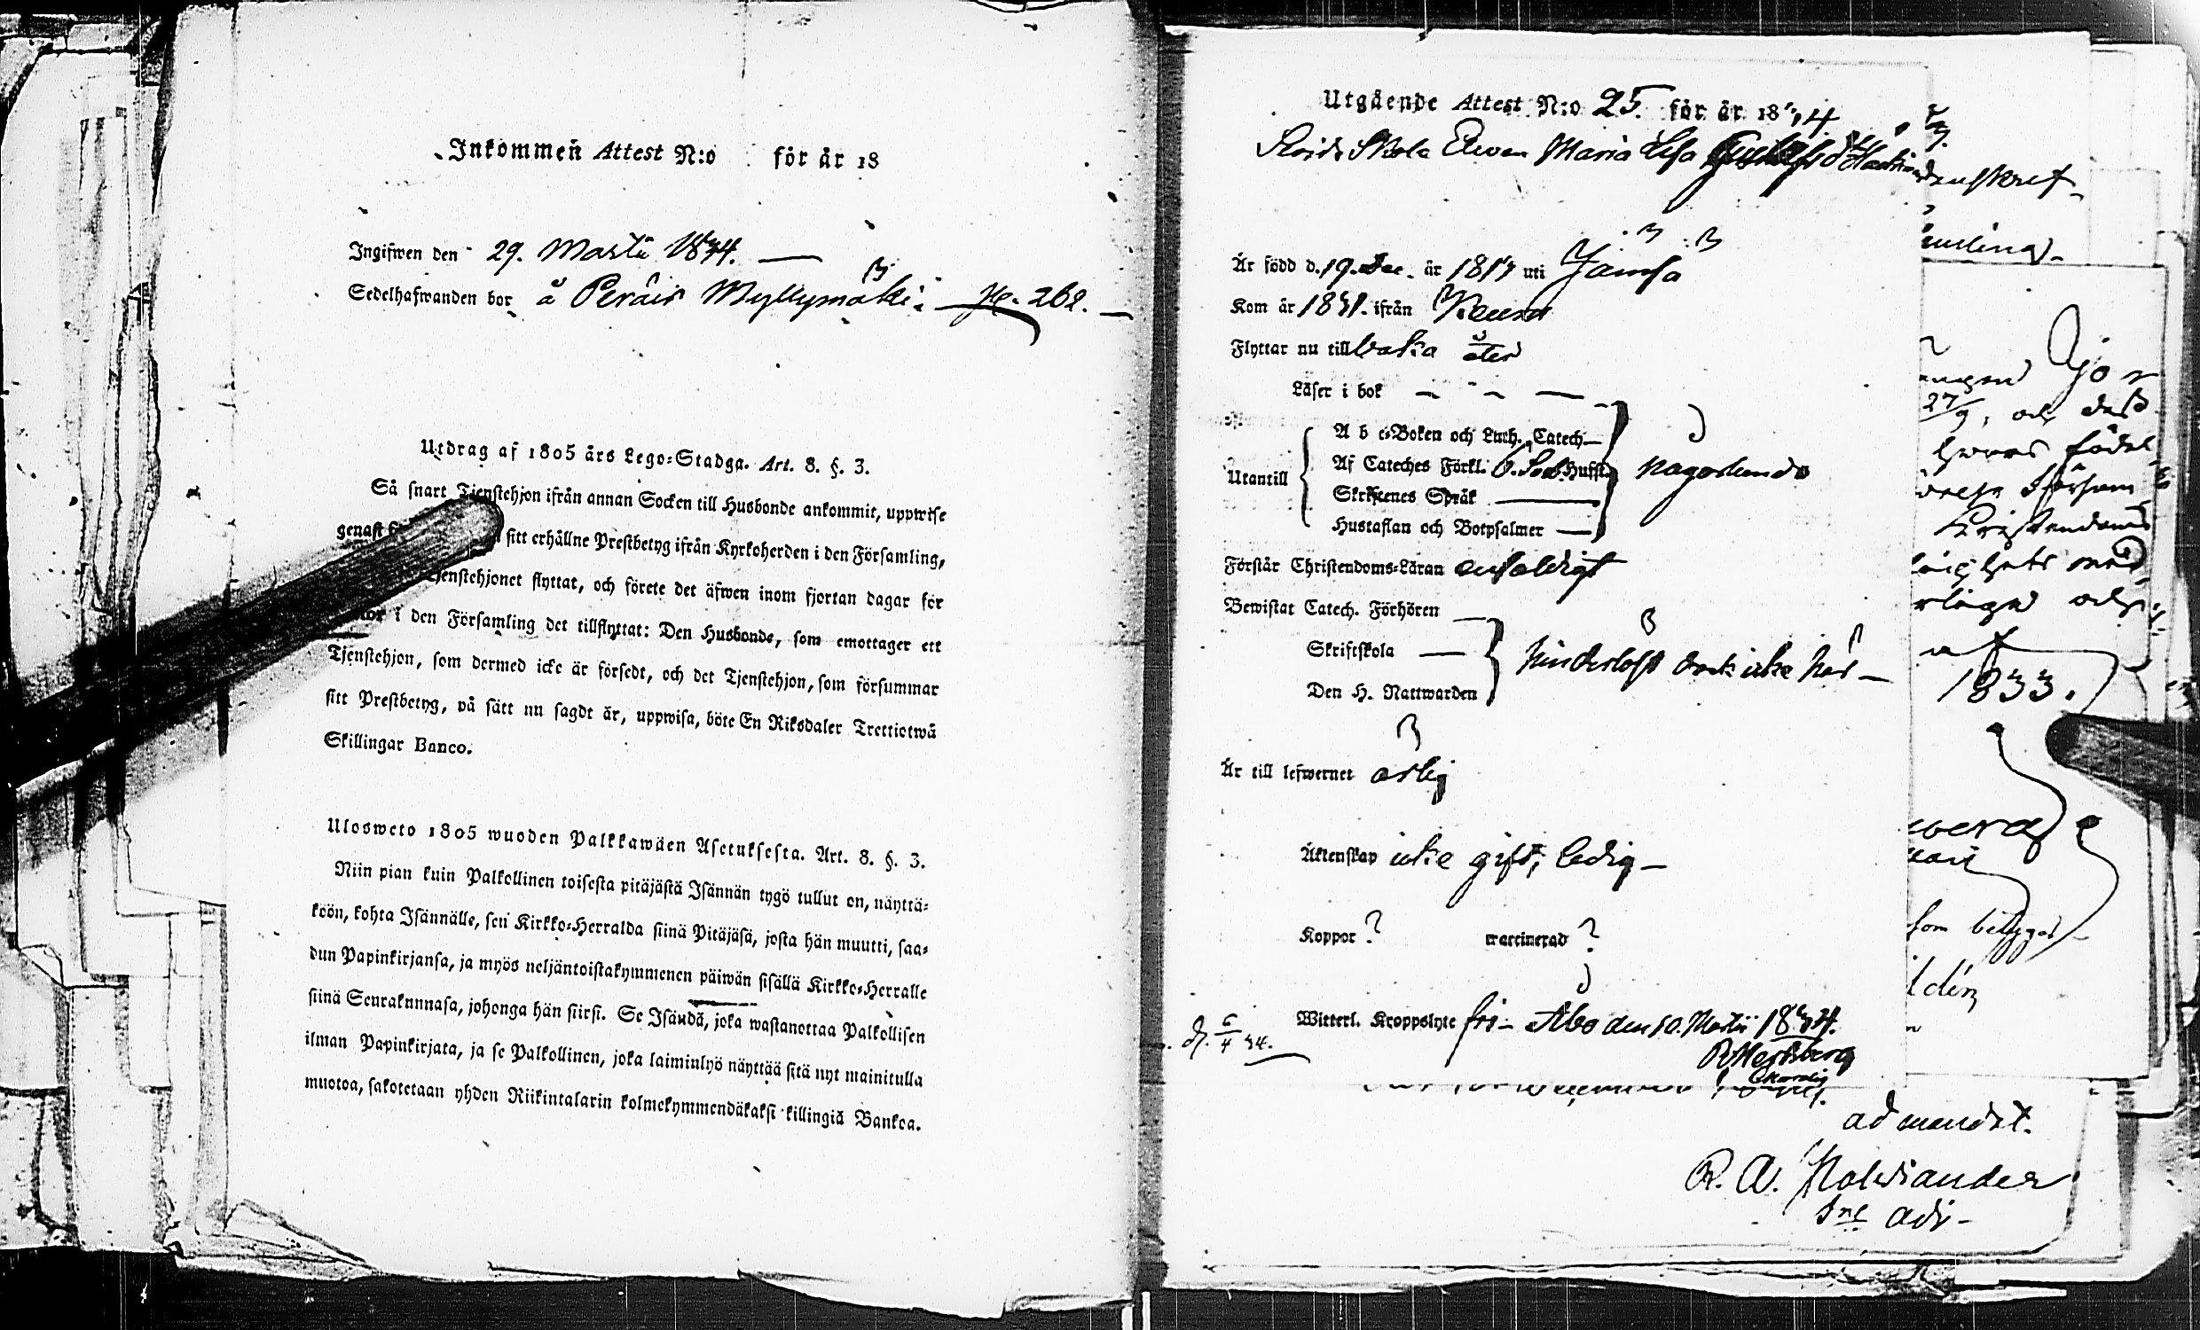 Inkommen Attest N:o för år 18
Ingifwen den 29. Martii 1834.
Sedelhafwanden bor å Peräis Myllymäki. 262.
Utdrag af 1805 års Lego-Stadga. Art. 8. §. 3.
Så snart Tjenstehjon ifrån annan Socken till Husbonde ankommit, uppwise
genast sitt erhållne Prestbetyg ifrån Kyrkoherden i den Församling,
Tjenstehjonet flyttat, och förete det äfwen inom fjortan dagar för
i den Församling det tillflyttat: Den Husbonde, som emottager ett
Tjenstehjon, som dermed icke är försedt, och det Tjenstehjon, som försummar
sitt Prestbetyg, på sätt nu sagdt är, uppwisa, böte En Riksdaler Trettiotwå
Skillingar Banco.
Ulosweto 1805 wuoden Palkkawäen Asetuksesta. Art. 8. §. 3.
Niin pian kuin Palkollinen toisesta pitäjästä Isännän tygö tullut on, näyttä-
köön, kohta Isännälle, sen Kirkko-Herralda siinä Pitäjäsä, josta hän muutti, saa-
dun Papinkirjansa, ja myös neljäntoistakymmenen päiwän sisällä Kirkko-Herralle
siinä Seurakunnasa, johonga hän siirsi. Se Isändä, joka wastanottaa Palkollisen
ilman Papinkirjata, ja se Palkollinen, joka laiminlyö näyttää sitä nyt mainitulla
muotoa, sakotetaan yhden Riikintalarin kolmekymmendäkaksi killingiä Bankoa.
Utgående Attest N:o 25. för år 1834
Skola Elewen Maria Lisa
Är född d. 19. Dec. år 1817 uti Jämsä
Kom år 1831. ifrån Keuru
Flyttar nu till baka åter
Läser i bok
Utantill
A b c-Boken och Luth. Catech.
Af Cateches Förkl. Hufst.
Skriftenes Språk
Hustaflan och Botpsalmer
någorlunda
Förstår Christendoms-Läran enfaldigt
Bewistat Catech. Förhören
Skriftskola
Den H. Nattwarden
hinderlös dock icke här
Är till lefwernet ärlig
Äktenskap icke gift, ledig
Koppor ? vaccinerad ?
Witterl. Kroppslyte fri Åbo den 10. Martii 1834.
d. 6/4 34.
27/9, och
1833.
som betygar
ad mandat.
R. A. Holsiander
adj